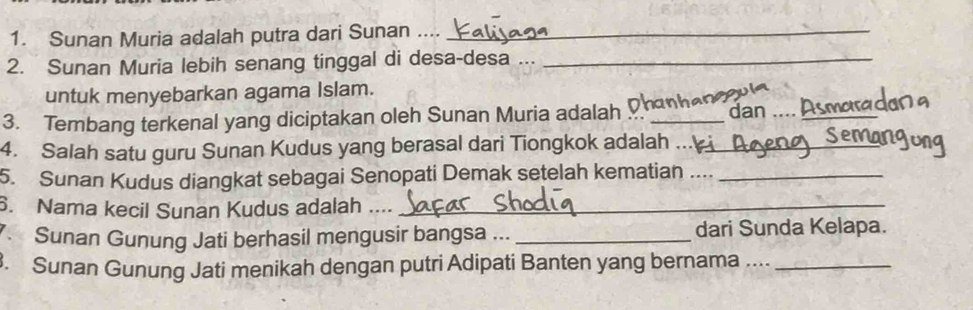 1. Sunan Muria adalah putra dari Sunan .... Kalijaga
2. Sunan Muria lebih senang tinggal di desa-desa ...
untuk menyebarkan agama Islam.
3. Tembang terkenal yang diciptakan oleh Sunan Muria adalah ... Dhanhanggula dan .... Asmaradana
4. Salah satu guru Sunan Kudus yang berasal dari Tiongkok adalah ... ki Ageng Semangung
5. Sunan Kudus diangkat sebagai Senopati Demak setelah kematian ....
6. Nama kecil Sunan Kudus adalah .... Jafar Shodiq
7. Sunan Gunung Jati berhasil mengusir bangsa ... dari Sunda Kelapa.
8. Sunan Gunung Jati menikah dengan putri Adipati Banten yang bernama ....